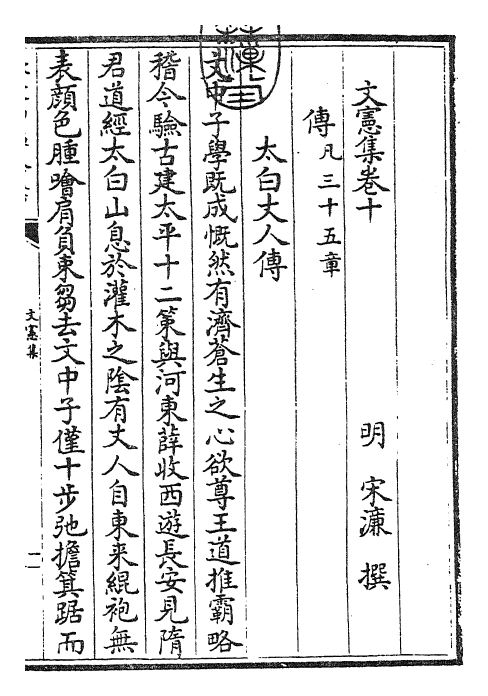 文憲集卷十
明 宋濂 撰
傳凡三十五章
太白丈人傳
文中子學既成慨然有濟蒼生之心欲尊王道推霸略
稽今驗古建太平十二策與河東薛收西遊長安見隋
君道經太白山息於灌木之陰有丈人自東来緄袍無
表顔色腫噲肩負束芻去文中子僅十步弛擔箕踞而
文憲集
一